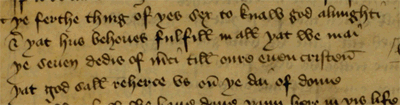 þe ferthe thing of þes sex to knaw god almighti
& þat hus behoues fulfill in all þat we mai
þe seuen dedis of m̄ci till oure euen cristen
þat god sall reherce vs on þe dai of dome